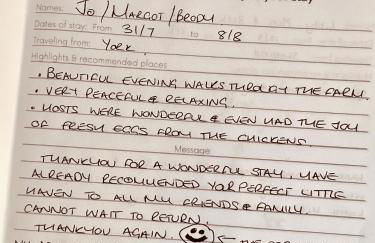 Names: JO/MARGOT/BRODY
Dates of stay: From 31/7 to 8/8
Traveling from: York.
Highlights & recommended places
• BEAUTIFUL EVENING WALKS THROUGH THE FARM.
• VERY PEACEFUL & RELAXING.
• HOSTS WERE WONDERFUL & EVEN HAD THE JOY
OF FRESH EGGS FROM THE CHICKENS.
Message
THANKYOU FOR A WONDERFUL STAY, HAVE
ALREADY RECOMMENDED YOR PERFECT LITTLE
HAVEN TO ALL MY FRIENDS & FAMILY.
CANNOT WAIT TO RETURN.
THANKYOU AGAIN.